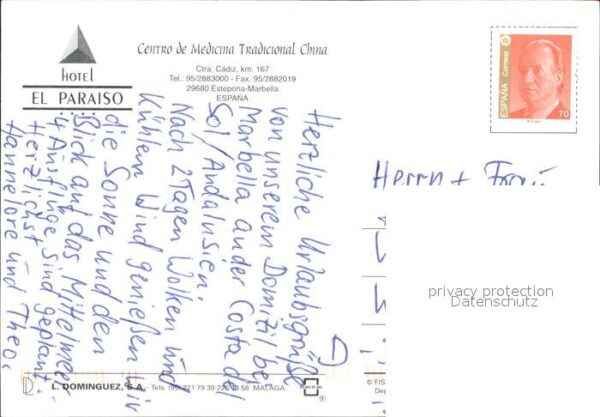 HOTEL
EL PARAISO
Centro de Medicina Tradicional China
Ctra. Cádiz, km. 167
Tel.: 95/2883000 - Fax. 95/2882019
29680 Estepona-Marbella
ESPAÑA
ESPAÑA
Correos
70
Herzliche Urlaubsgrüße
von unserem Domizil bei
Marbella an der Costa del
Sol/Andalusien.
Nach 2 Tagen Wolken und
Kühlem Wind genießen wir
die Sonne und den
Blick auf das Mittelmeer.
4 Ausflüge sind geplant.
Herzlichst
Hannelore und Theo.
Herrn + Frau
privacy protection
Datenschutz
L. DOMINGUEZ, S.A. - Tels. (95) 221 79 39-225 58 MALAGA
© FIS
Dep